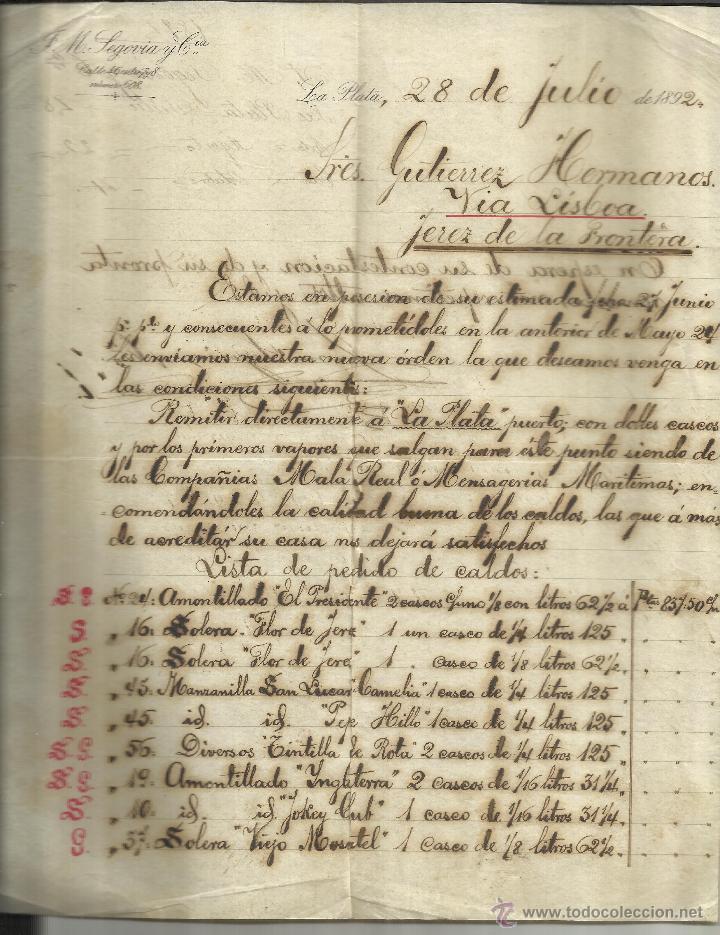 F. M. Segovia y Cia
número 608.
La Plata, 28 de Julio de 1892.
Sres. Gutierrez Hermanos.
Via Lisboa.
Jerez de la Frontera.
Estamos en posesion de su estimada fha 27 Junio
pº pdº y consecuentes á lo prometídoles en la anterior de Mayo 24
les enviamos nuestra nueva órden la que deseamos venga en
las condiciones siguientes:
Remitir directamente á "La Plata" puerto; con dobles cascos
y por los primeros vapores que salgan para éste punto siendo de
las Compañias Mala Real ó Mensagerias Maritimas; en-
comendándoles la calidad buena de los caldos, las que á más
de acreditár su casa nos dejará satisfechos
Lista de pedido de caldos:
Nº 24: Amontillado "El Presidente" 2 cascos c/uno 1/8 con litros 62 1/2 á Ptas 237.50 c/u
" 16: Solera "Flor de Jeré" 1 un casco de 1/4 litros 125 "
" 16: Solera "Flor de Jeré" 1 . casco de 1/8 litros 62 1/2 "
" 45: Manzanilla San Lucar "Camelia" 1 casco de 1/4 litros 125 "
" 45: id. id. "Pepe Hillo" 1 casco de 1/4 litros 125 "
" 56: Diversos "Tintilla de Rota" 2 cascos de 1/4 litros 125 "
" 19: Amontillado "Inglaterra" 2 cascos de 1/16 litros 31 1/4 "
" 10: id. id. "Jokey Club" 1 casco de 1/16 litros 31 1/4 "
" 57: Solera "Viejo Moscatel" 1 casco de 1/8 litros 62 1/2 "
www.todocoleccion.net